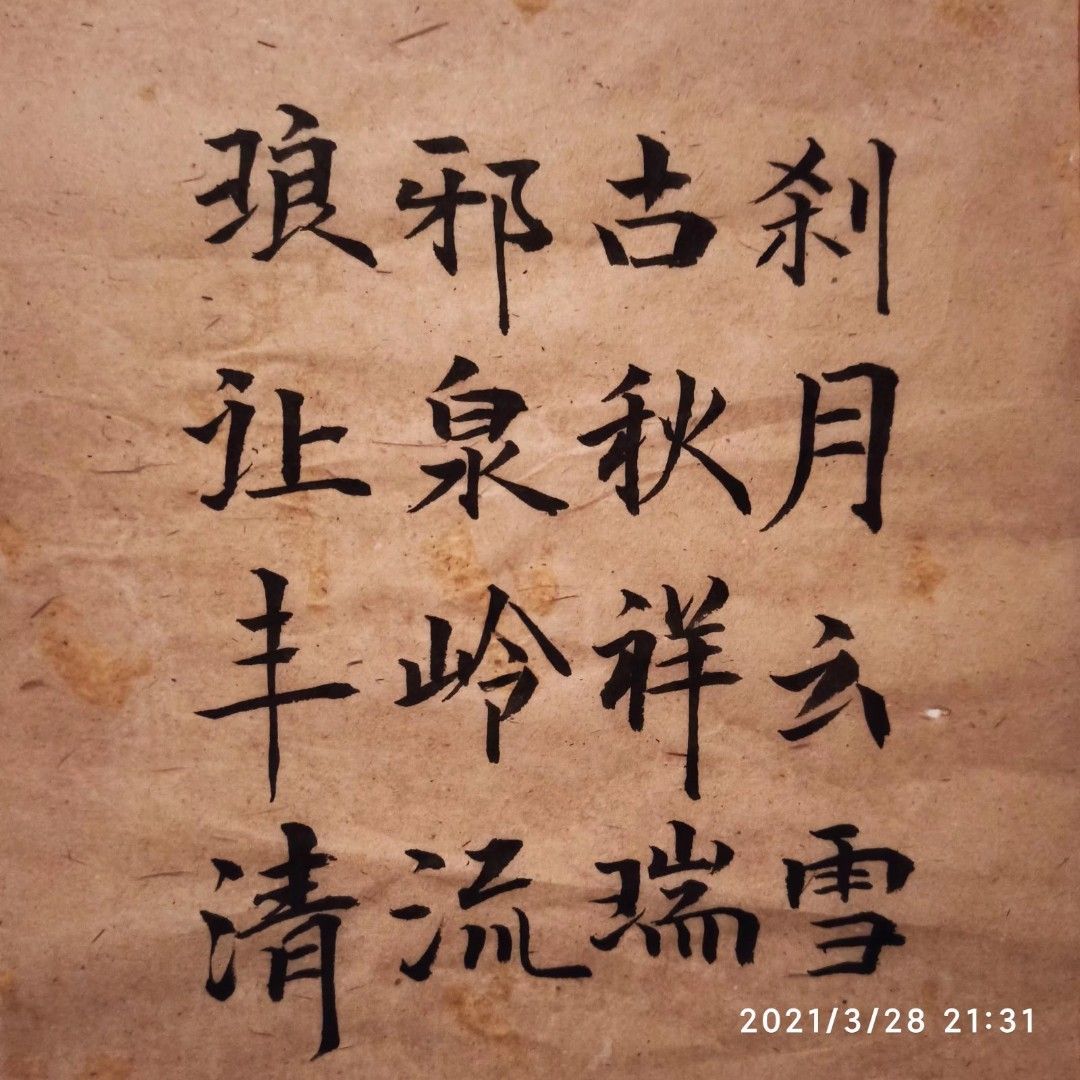 琅邪古刹
让泉秋月
丰岭祥云
清流瑞雪
2021/3/28 21:31